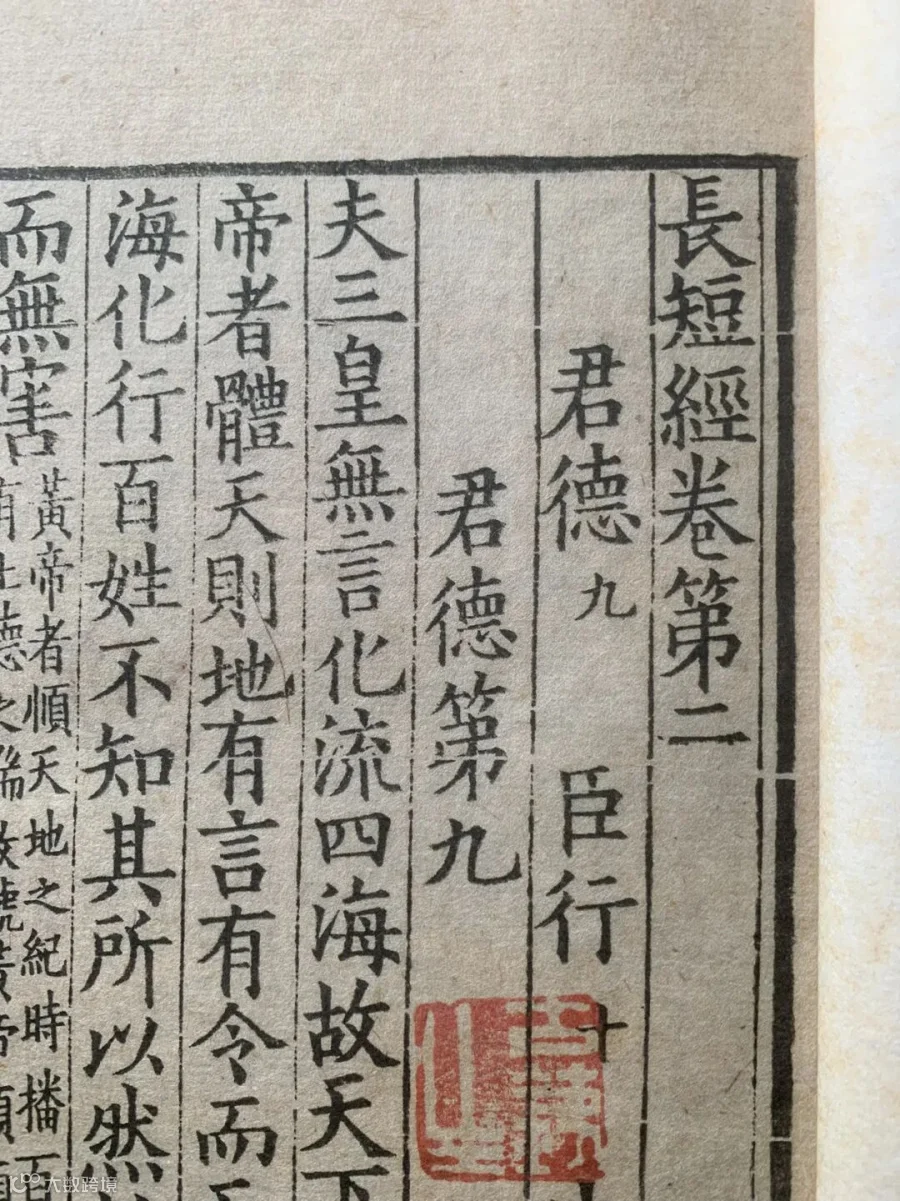 長短經卷第二
君德九　臣行十
君德第九
夫三皇無言化流四海故天下
帝者體天則地有言有令而
海化行百姓不知其所以然
而無害
黃帝者順天地之紀時播百
有土德之瑞故號黃帝
大数跨境